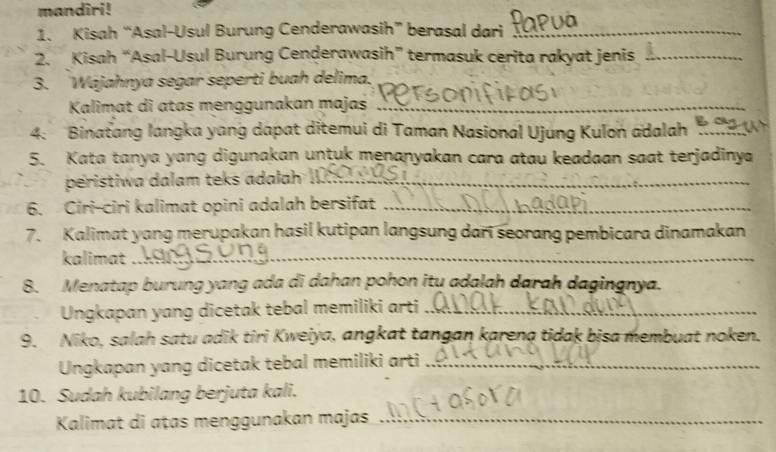 mandiri!
1. Kisah "Asal-Usul Burung Cenderawasih" berasal dari Papua
2. Kisah "Asal-Usul Burung Cenderawasih" termasuk cerita rakyat jenis
3. Wajahnya segar seperti buah delima.
Kalimat di atas menggunakan majas Personifikasi
4. Binatang langka yang dapat ditemui di Taman Nasional Ujung Kulon adalah
5. Kata tanya yang digunakan untuk menanyakan cara atau keadaan saat terjadinya
peristiwa dalam teks adalah
6. Ciri-ciri kalimat opini adalah bersifat
7. Kalimat yang merupakan hasil kutipan langsung dari seorang pembicara dinamakan
kalimat langsung
8. Menatap burung yang ada di dahan pohon itu adalah darah dagingnya.
Ungkapan yang dicetak tebal memiliki arti anak kandung
9. Niko, salah satu adik tiri Kweiya, angkat tangan karena tidak bisa membuat noken.
Ungkapan yang dicetak tebal memiliki arti
10. Sudah kubilang berjuta kali.
Kalimat di atas menggunakan majas metasora